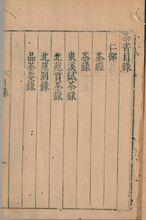 茶書目錄
仁部
茶經
茶錄
東溪試茶錄
北苑貢茶錄
北苑別錄
品茶要錄